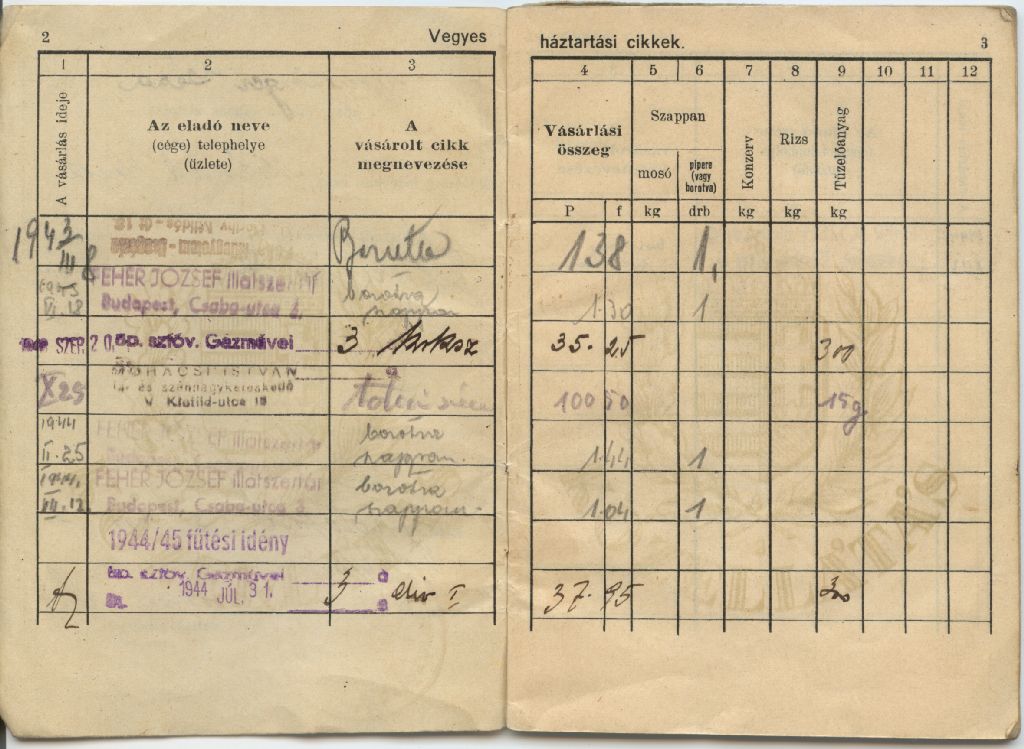 2 Vegyes
1 2 3
A vásárlás ideje
Az eladó neve
(cége) telephelye
(üzlete)
A
vásárolt cikk
megnevezése
1943
III 8
FEHÉR JÓZSEF illatszertár
Budapest, Csaba-utca 3.
VI. 12
borotva
szappan
SZEP. 20. Bp. szföv. Gázművei 3 koksz
X 25
MOHÁCSI ISTVÁN
fa- és szénnagykereskedő
V. Klotild-utca 18
1944
II. 25
illatszertár
borotva
szappan.
1944.
III. 12.
FEHÉR JÓZSEF illatszertár
Budapest, Csaba-utca 3.
borotva
szappan.
1944/45 fűtési idény
Bp. szföv. Gázművei
1944 JÚL. 31.
3 div I
háztartási cikkek. 3
4 5 6 7 8 9 10 11 12
Vásárlási
összeg
Szappan
mosó
pipere
(vagy
borotva)
Konzerv
Rizs
Tüzelőanyag
P f kg drb kg kg kg
138 1,
1.30 1
35.25 300
100 50 15q
1.44 1
1.04 1
37.95 300